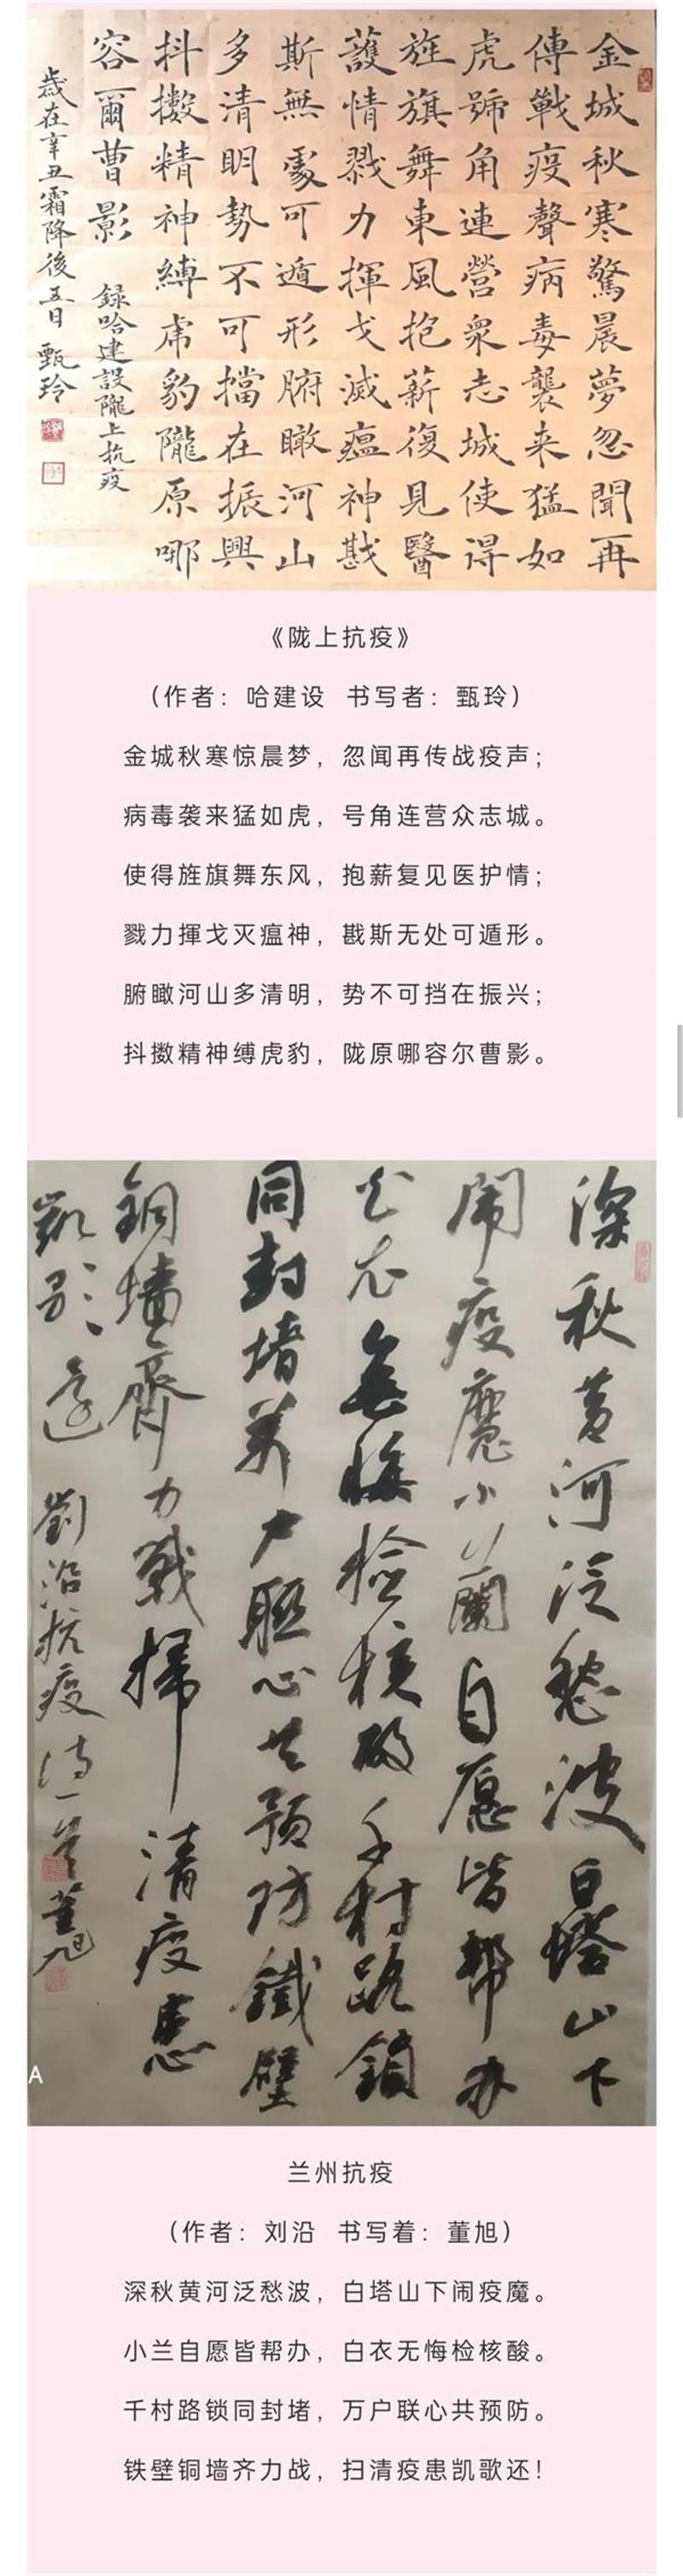 金城秋寒驚晨夢忽聞再
傳戰疫聲病毒襲来猛如
虎號角連營衆志城使得
旌旗舞東風抱薪復見醫
護情戮力揮戈滅瘟神戡
斯無處可遁形腑瞰河山
多清明勢不可擋在振興
抖擻精神縛虎豹隴原哪
容爾曹影 録哈建設隴上抗疫
歲在辛丑霜降後五日 甄玲
《陇上抗疫》
（作者：哈建设 书写者：甄玲）
金城秋寒惊晨梦，忽闻再传战疫声；
病毒袭来猛如虎，号角连营众志城。
使得旌旗舞东风，抱薪复见医护情；
戮力揮戈灭瘟神，戡斯无处可遁形。
腑瞰河山多清明，势不可挡在振兴；
抖擞精神缚虎豹，陇原哪容尔曹影。
深秋黄河泛愁波白塔山下
闹疫魔小蘭自愿皆帮办
白衣無悔检核酸千村路鎖
同封堵萬户联心共预防鐵壁
銅墙齊力戰掃清疫患
凯歌还 劉沿抗疫诗一首 董旭
A
兰州抗疫
（作者：刘沿 书写着：董旭）
深秋黄河泛愁波，白塔山下闹疫魔。
小兰自愿皆帮办，白衣无悔检核酸。
千村路锁同封堵，万户联心共预防。
铁壁铜墙齐力战，扫清疫患凯歌还！